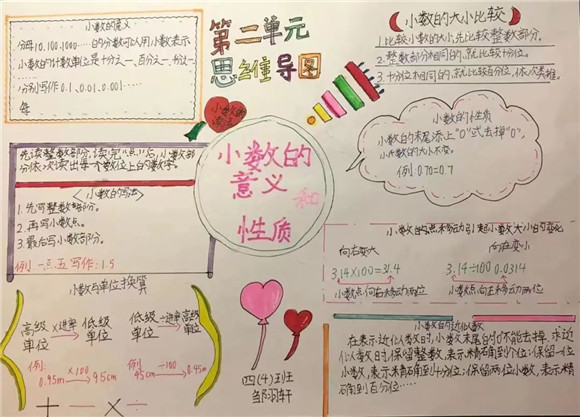 第二单元
思维导图
小数的意义
分母10.100.1000……的分数可以用小数表示
小数的计数单位是十分之一、百分之一、
分别写作0.1、0.01、0.001…
每
小数的读法
先读整数部分,读完“点”后,小数部
分依次读出每个数位上的数字。
<小数的写法>
1.先写整数部分。
2.再写小数点。
3.最后写小数部分。
例:一点五写作:1.5
小数与单位换算
高级单位 ×进率 低级单位
低级单位 ÷进率 高级单位
例: ×100
0.95m 95cm
例: ÷100
45cm 0.45m
+ − × ÷
小数的
意义
和
性质
四(4)班
邹羽轩
小数的大小比较
1.比较小数的大小,先比较整数部分,
2.整数部分相同的,就比较十分位。
3.十分位相同的,就比较百分位,依次类推。
小数的性质
小数的末尾添上“0”或去掉“0”,
小数的大小不变。
例:0.70=0.7
小数的小数点移动引起小数大小的变化
向右变大
向左变小
3.14×100=31.4
3.14÷100 0.0314
小数点向右移动两位
小数点向左移动两位
小数的近似数
在表示近似数时,小数末尾的0不能去掉,求近
似数时,保留整数,表示精确到个位;保留一位
小数,表示精确到十分位;保留两位小数,表示精
确到百分位……